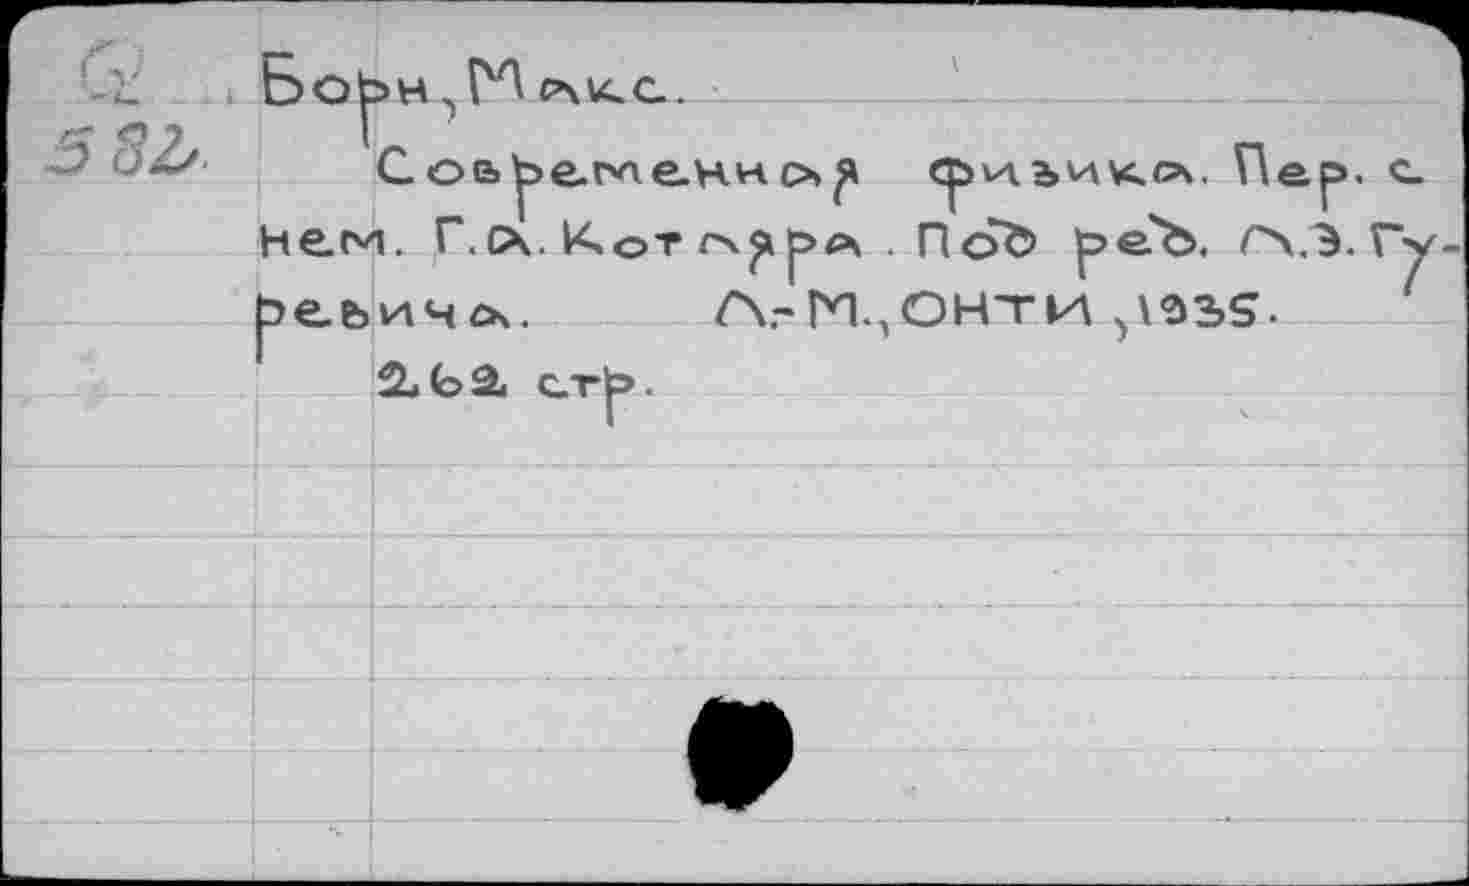 Борн, Макс.
582
Современная физика. Пер. с
нем. Г.А. Котляра. Под ред. Л.Э. Гу-
ревича. Л.-М., ОНТИ, 1935.
262 стр.